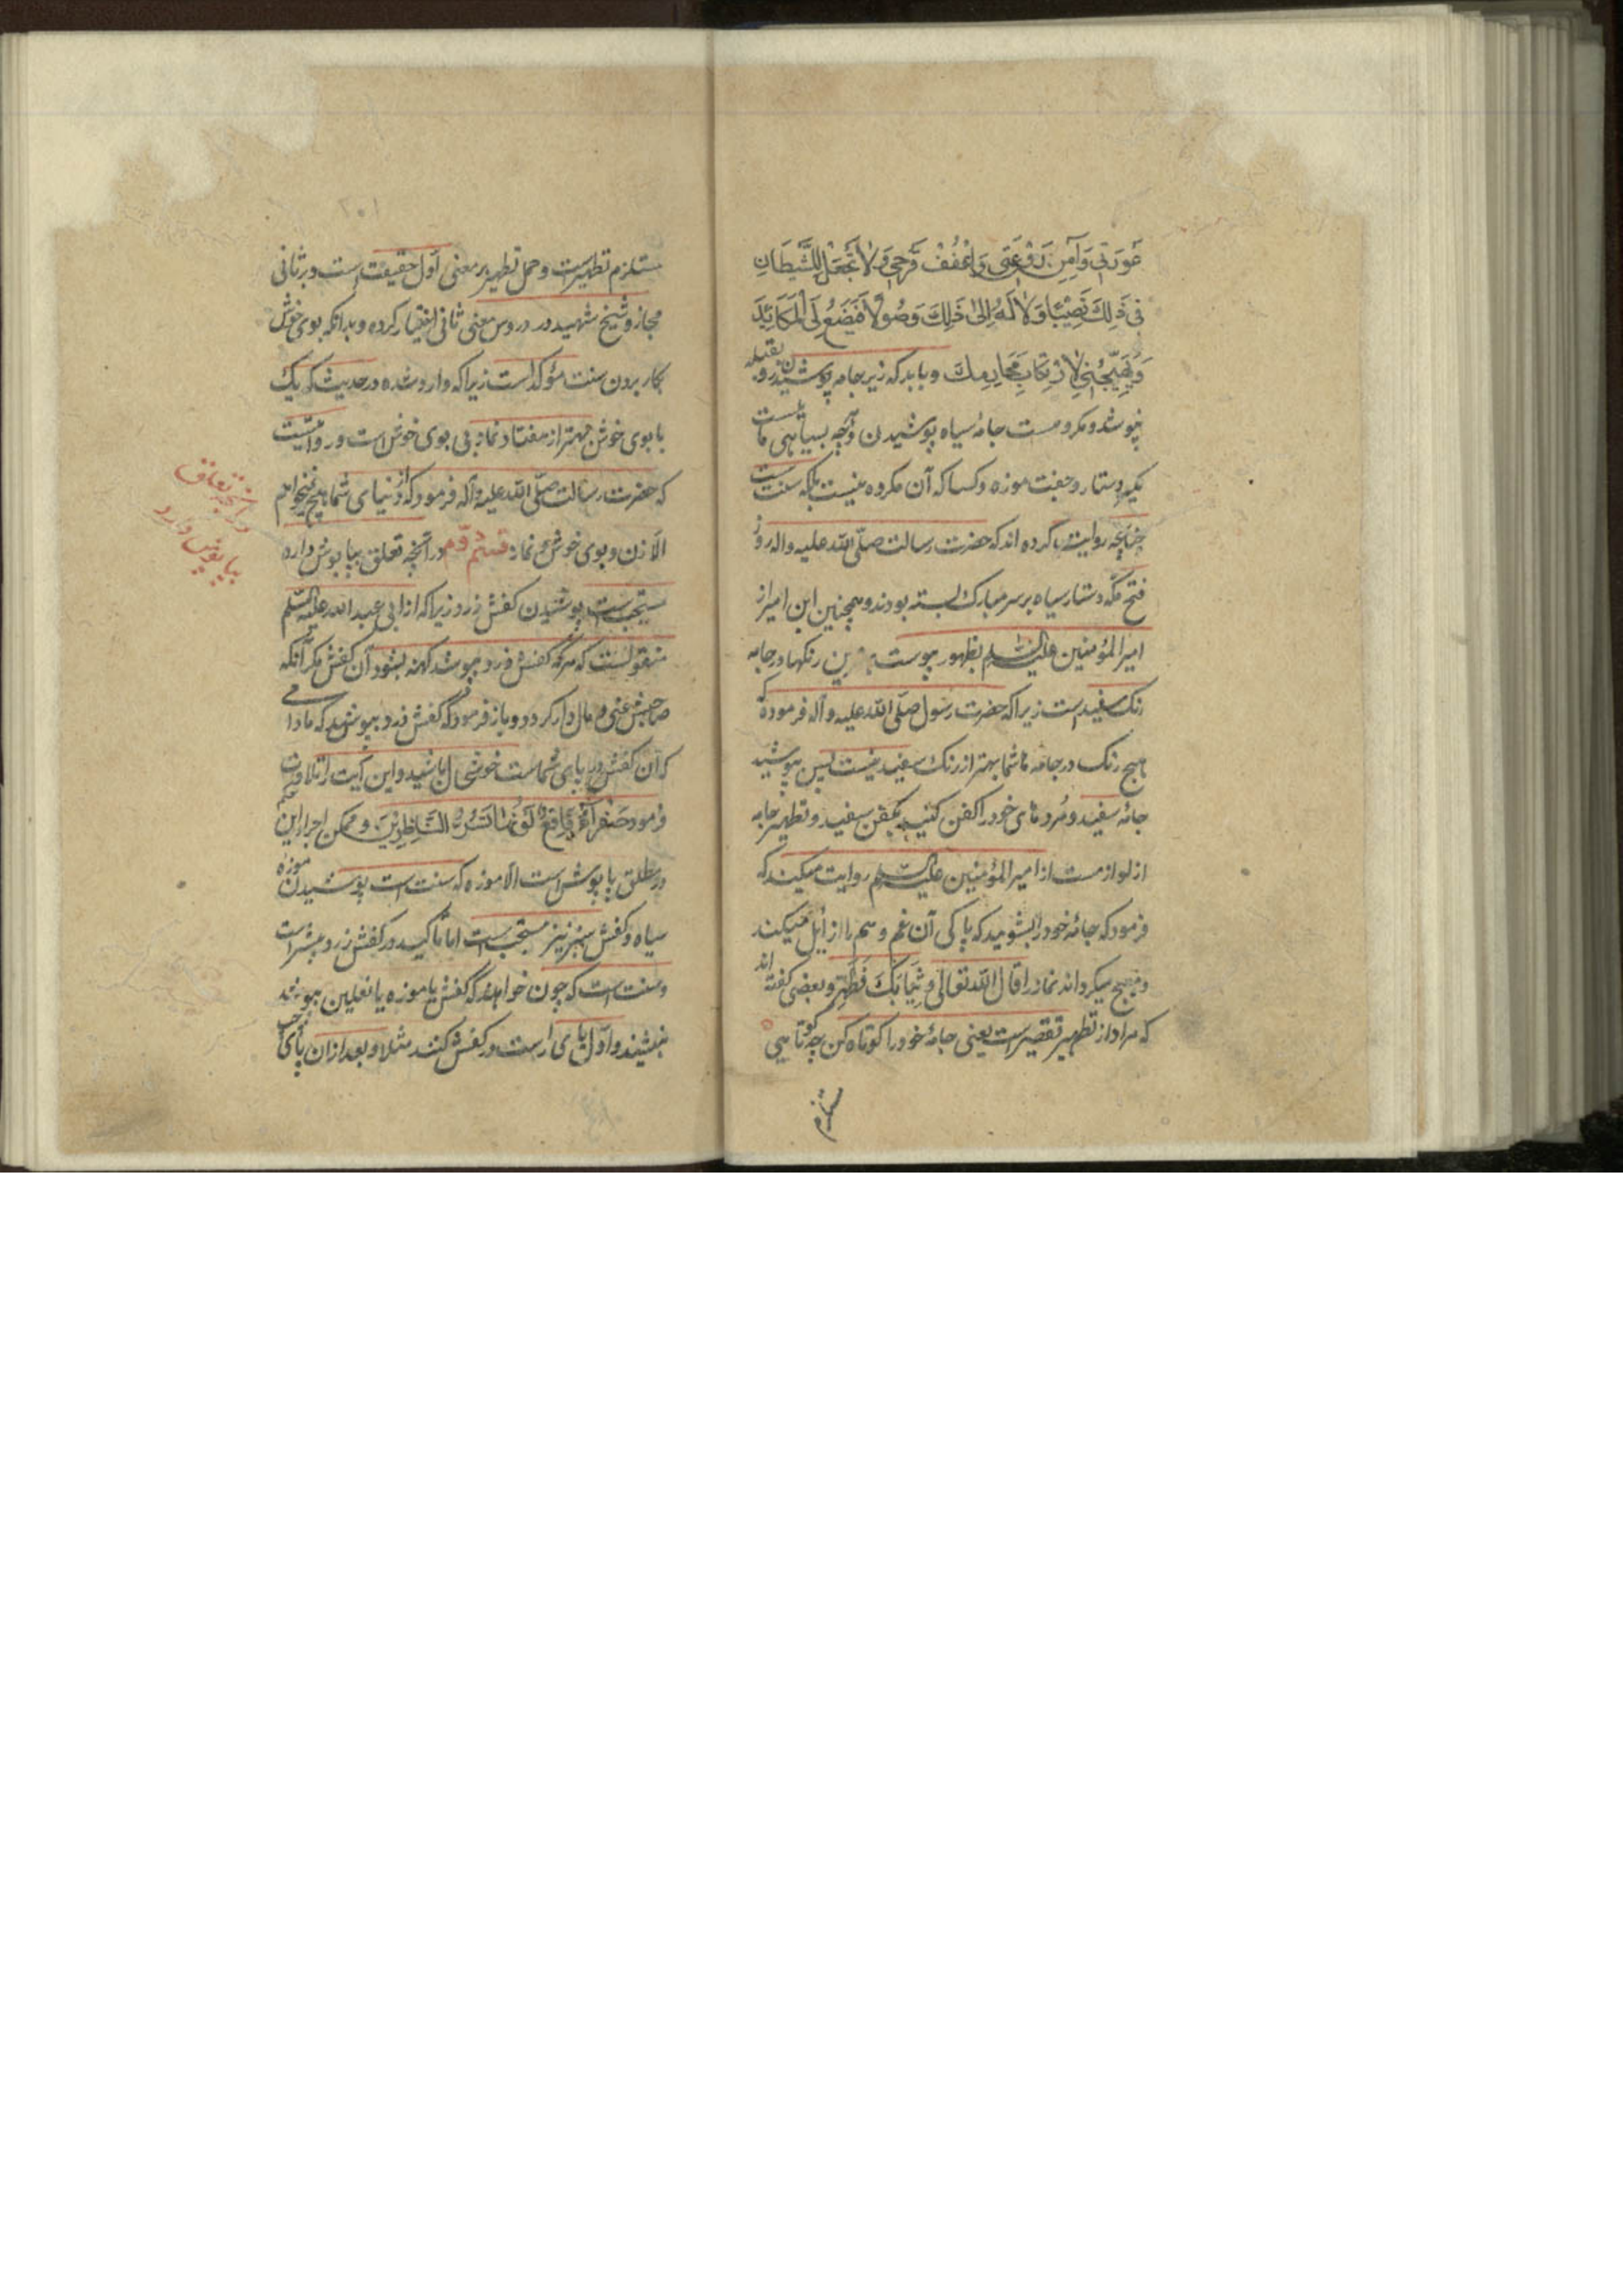 عَورَتی وَآمِن رَوعَتی وَاعْفُفْ فَرجی وَلا تَجعَل لِلشَّیطَانِ
فی ذَلِكَ نَصِیبًا وَلا لَهُ اِلیٰ ذَلِكَ وَصُولًا فَیَضَعَ لِیَ المَکَائِدَ
وَیُهَیِّجُنی لِارْتِکابِ مَحَارِمِكَ و باید که زیر جامه پوشیدن رو بقبله
نپوشد و مکروهست جامهٔ سیاه پوشیدن و آنچه بسیاهی
مکر دستار و جفت موزه و کسا که آن مکروه نیست بلکه سنت است
چنانچه روایت کرده اند که حضرت رسالت صلّی الله علیه واله روز
فتح مکّه دستار سیاه بر سر مبارك بسته بودند و همچنین این امر از
امیر المؤمنین علیه السّلم بظهور پیوست بهترین رنکها در جامه
رنك سفید است زیرا که حضرت رسول صلّی الله علیه وآله فرموده که
هیچ رنك در جامه شما بهتر از رنك سفید نیست پس بپوشید
جامهٔ سفید و مُرده های خود را کفن کنید بکفن سفید و تطهیر جامه
از لوازمست از امیر المؤمنین علیه السّلم روایت میکنند که
فرمود که جامهٔ خود را بشوئید که پاکی آن غم و هم را زایل میکند
و صحیح میکرداند نماز را قال الله تعالی وَثِیَابَكَ فَطَهِّر و بعضی کفته اند
که مراد از تطهیر تقصیر است یعنی جامهٔ خود را کوتاه کن چه کوتاهی
مستلزم
۲۰۱
مستلزم تطهیر است و حمل تطهیر بر معنی اوّل حقیقت است و بر ثانی
مجاز و شیخ شهید در دروس معنی ثانی اختیار کرده و بدانکه بوی خوش
بکار بردن سنت مؤکد است زیرا که وارد شده در حدیث که یك
با بوی خوش بهتر از هفتاد نماز بی بوی خوش است و روایتست
که حضرت رسالت صلّی الله علیه وآله فرمود که از دنیای شما هیچ نمیخواهم
الّا زن و بوی خوش و نماز قسم دوّم در آنچه تعلق بپاپوش دارد
در آنچه تعلق
بپاپوش دارد
مستحبست پوشیدن کفش زرد زیرا که از ابی عبد الله علیه السّلم
منقولست که هرکه کفش زرد بپوشد کهنه نشود آن کفش مکر آنکه
صاحبش غنی و مال دار کردد و باز فرمود که کفش زرد بپوشید که مادامی
که آن کفش در پای شماست خوشحال باشید و این آیت را تلاوت
فرمود صَفرَآءُ فَاقِعٌ لَونُهَا تَسُرُّ النَّاظِرِینَ و ممکن اجرا این حکم
در مطلق پاپوش است الّا موزه که سنت است پوشیدن موزه
سیاه و کفش سبز نیز مستحبست اما تاکید در کفش زرد بیشتر است
و سنت است که چون خواهد که کفش یا موزه یا نعلین بپوشد
بنشیند و اوّل پای راست در کفش کند مثلا و بعد از آن پای چپ